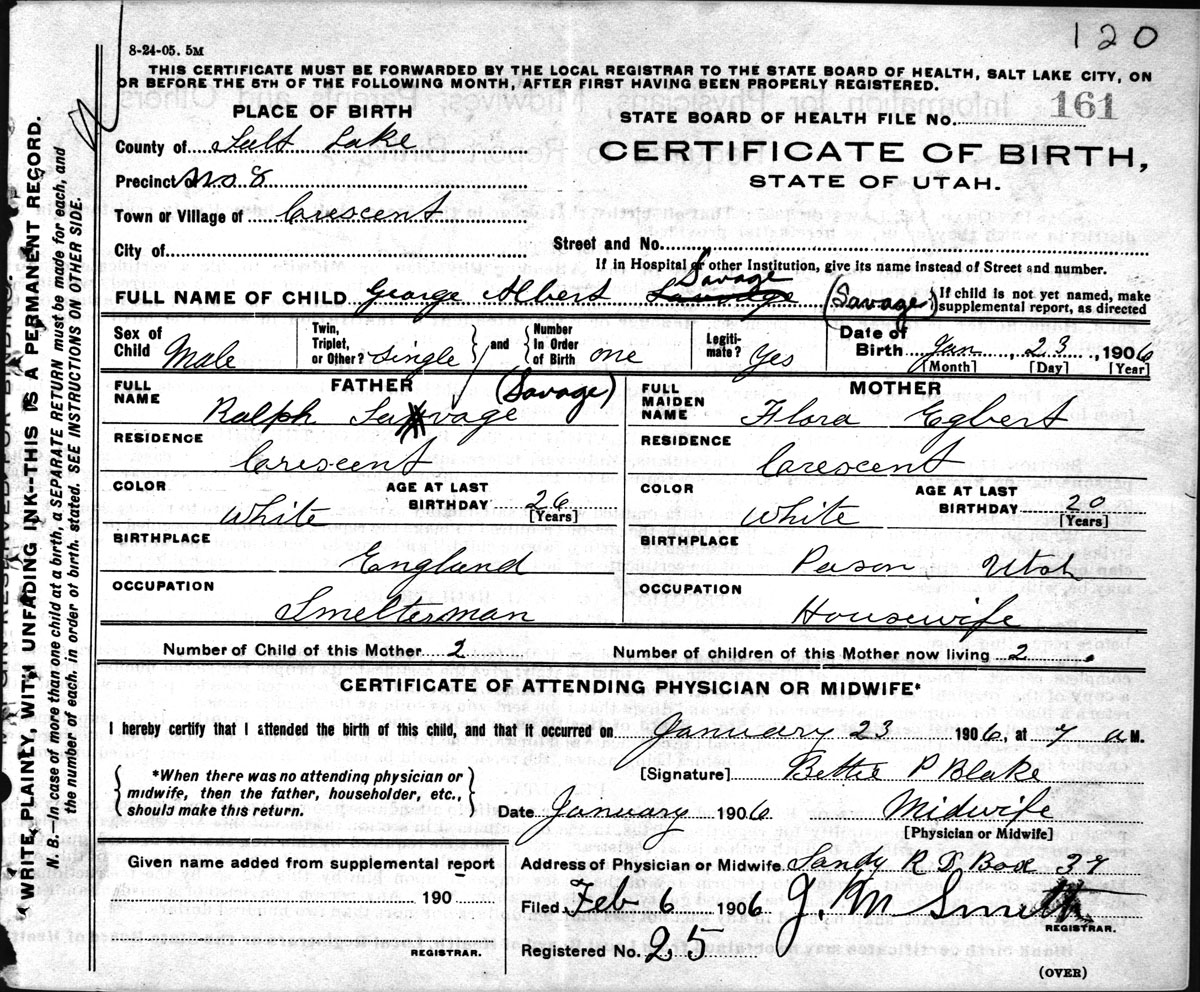 120
8-24-05. 5M
THIS CERTIFICATE MUST BE FORWARDED BY THE LOCAL REGISTRAR TO THE STATE BOARD OF HEALTH, SALT LAKE CITY, ON
OR BEFORE THE 5TH OF THE FOLLOWING MONTH, AFTER FIRST HAVING BEEN PROPERLY REGISTERED.
PLACE OF BIRTH
STATE BOARD OF HEALTH FILE NO. 161
County of Salt Lake
CERTIFICATE OF BIRTH,
STATE OF UTAH.
Precinct No 8
Town or Village of Crescent
City of
Street and No.
If in Hospital or other Institution, give its name instead of Street and number.
Savage
FULL NAME OF CHILD George Albert (Savage)
If child is not yet named, make
supplemental report, as directed
Sex of Child Male
Twin, Triplet, or Other? Single
and
Number In Order of Birth one
Legiti-mate? Yes
Date of Birth Jan 23, 1906
[Month] [Day] [Year]
FATHER
FULL NAME Ralph Savage (Savage)
RESIDENCE Crescent
COLOR White
AGE AT LAST BIRTHDAY 26 [Years]
BIRTHPLACE England
OCCUPATION Smelterman
MOTHER
FULL MAIDEN NAME Flora Egbert
RESIDENCE Crescent
COLOR White
AGE AT LAST BIRTHDAY 20 [Years]
BIRTHPLACE Utah
OCCUPATION Housewife
Number of Child of this Mother 2
Number of children of this Mother now living 2
CERTIFICATE OF ATTENDING PHYSICIAN OR MIDWIFE*
I hereby certify that I attended the birth of this child, and that it occurred on January 23 1906, at 7 a M.
*When there was no attending physician or
midwife, then the father, householder, etc.,
should make this return.
[Signature] Bettie P Blake
Date January 1906 Midwife
[Physician or Midwife]
Given name added from supplemental report
190
REGISTRAR.
Address of Physician or Midwife Sandy R D Box 37
Filed Feb 6 1906 J. M Smith
REGISTRAR.
Registered No. 25
(OVER)
WRITE PLAINLY, WITH UNFADING INK--THIS IS A PERMANENT RECORD.
N. B.--In case of more than one child at a birth, a SEPARATE RETURN must be made for each, and
the number of each, in order of birth, stated. SEE INSTRUCTIONS ON OTHER SIDE.